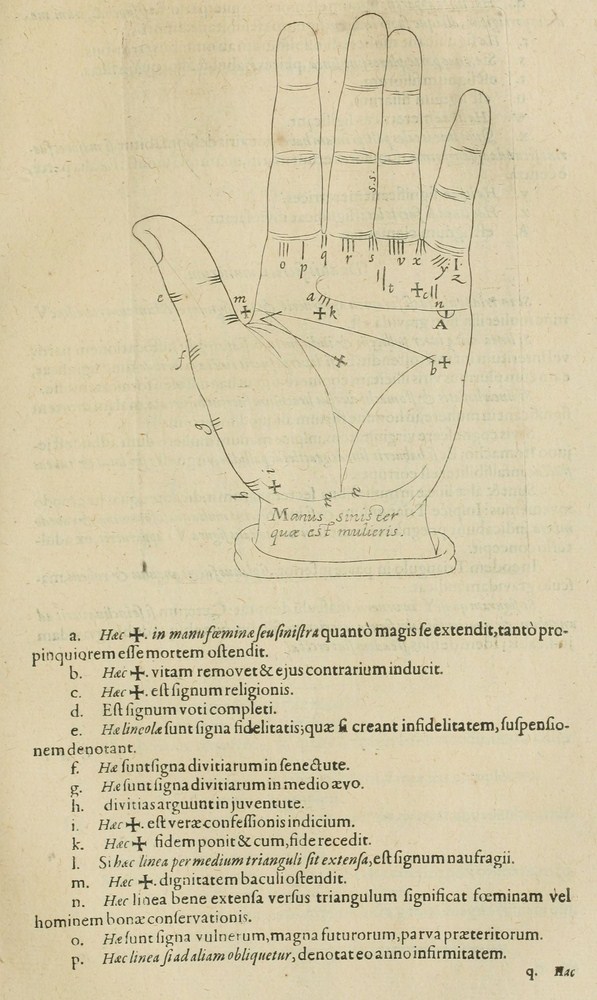 s.s.
o p q r s v x y I z
t
a k
c
n
A
m
e
f
b
g
h i
m n
Manus sinister
quæ est mulieris.
a. Hæc ✠. in manu fœminæ ſeu ſiniſtra quantò magis ſe extendit, tantò pro-
pinquiorem eſſe mortem oſtendit.
b. Hæc ✠. vitam removet & ejus contrarium inducit.
c. Hæc ✠. eſt ſignum religionis.
d. Eſt ſignum voti completi.
e. Hæ lineolæ ſunt ſigna fidelitatis; quæ ſi creant infidelitatem, ſuſpenſio-
nem denotant.
f. Hæ ſunt ſigna divitiarum in ſenectute.
g. Hæ ſunt ſigna divitiarum in medio ævo.
h. divitias arguunt in juventute.
i. Hæc ✠. eſt veræ confeſſionis indicium.
k. Hæc ✠ fidem ponit & cum, fide recedit.
l. Si hæc linea per medium trianguli ſit extenſa, eſt ſignum naufragii.
m. Hæc ✠. dignitatem baculi oſtendit.
n. Hæc linea bene extenſa verſus triangulum ſignificat fœminam vel
hominem bonæ conſervationis.
o. Hæ ſunt ſigna vulnerum, magna futurorum, parva præteritorum.
p. Hæc linea ſi ad aliam obliquetur, denotat eo anno infirmitatem.
q. Hac